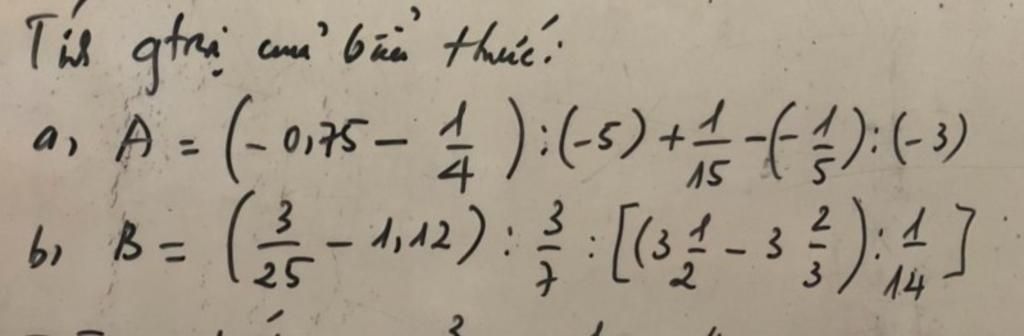 Tính gtrị của biểu thức:
a, A = (-0,75 - 1/4) : (-5) + 1/15 - (-1/5) : (-3)
b, B = (3/25 - 1,12) : 3/7 : [(3 1/2 - 3 2/3) : 1/14]